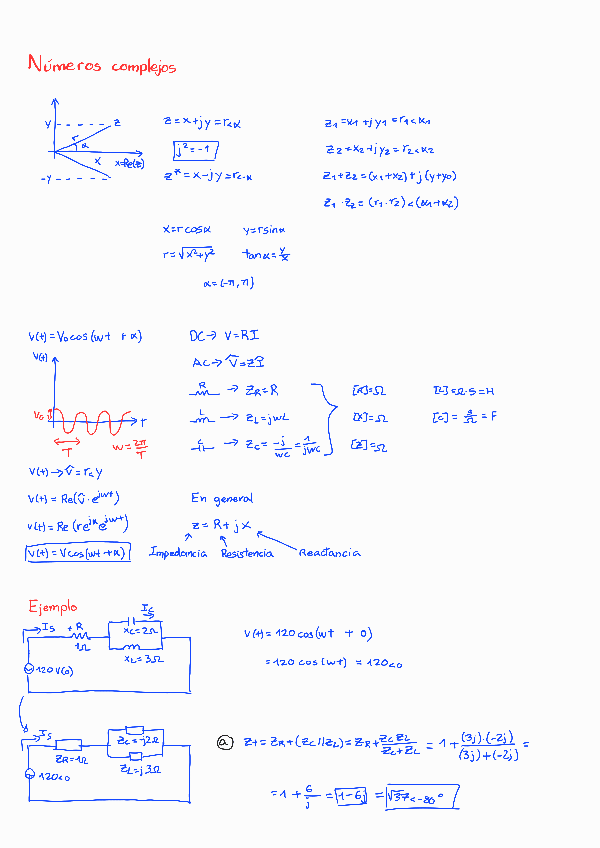 Números complejos
y z r α x x=Re(z) -y
z=x+jy=r<α
j²=-1
z*=x-jy=r<-α
z1=x1+jy1=r1<α1
z2=x2+jy2=r2<α2
z1+z2=(x1+x2)+j(y+y0)
z1·z2=(r1·r2)<(α1+α2)
x=r cosα y=rsinα
r=√x²+y² tanα=y/x
α=(-π,π]
v(t)=V0cos(wt+α)
V(t)
V0
T
T
w=2π/T
DC→ V=RI
AC→ V̂=ZÎ
R → ZR=R [R]=Ω [L]=Ω·S=H
L → ZL=jwL [X]=Ω [C]=s/Ω=F
C → ZC=-j/wC=1/jwC [Z]=Ω
V(t)→V̂=r<γ
V(t)=Re(V̂·e^jwt)
V(t)=Re(re^jα e^jwt)
V(t)=Vcos(wt+α)
En general
z=R+jX
Impedancia Resistencia Reactancia
Ejemplo
Is +R 1Ω Ic
XC=2Ω
XL=3Ω
120V(0)
V(t)=120cos(wt+0)
=120cos(wt)=120<0
Is
ZR=1Ω
ZC=-j2Ω
ZL=j3Ω
120<0
a Zt=ZR+(ZC//ZL)=ZR+ZC ZL/ZC+ZL=1+(3j)·(-2j)/(3j)+(-2j)=
=1+6/j=1-6j=√37<-80°